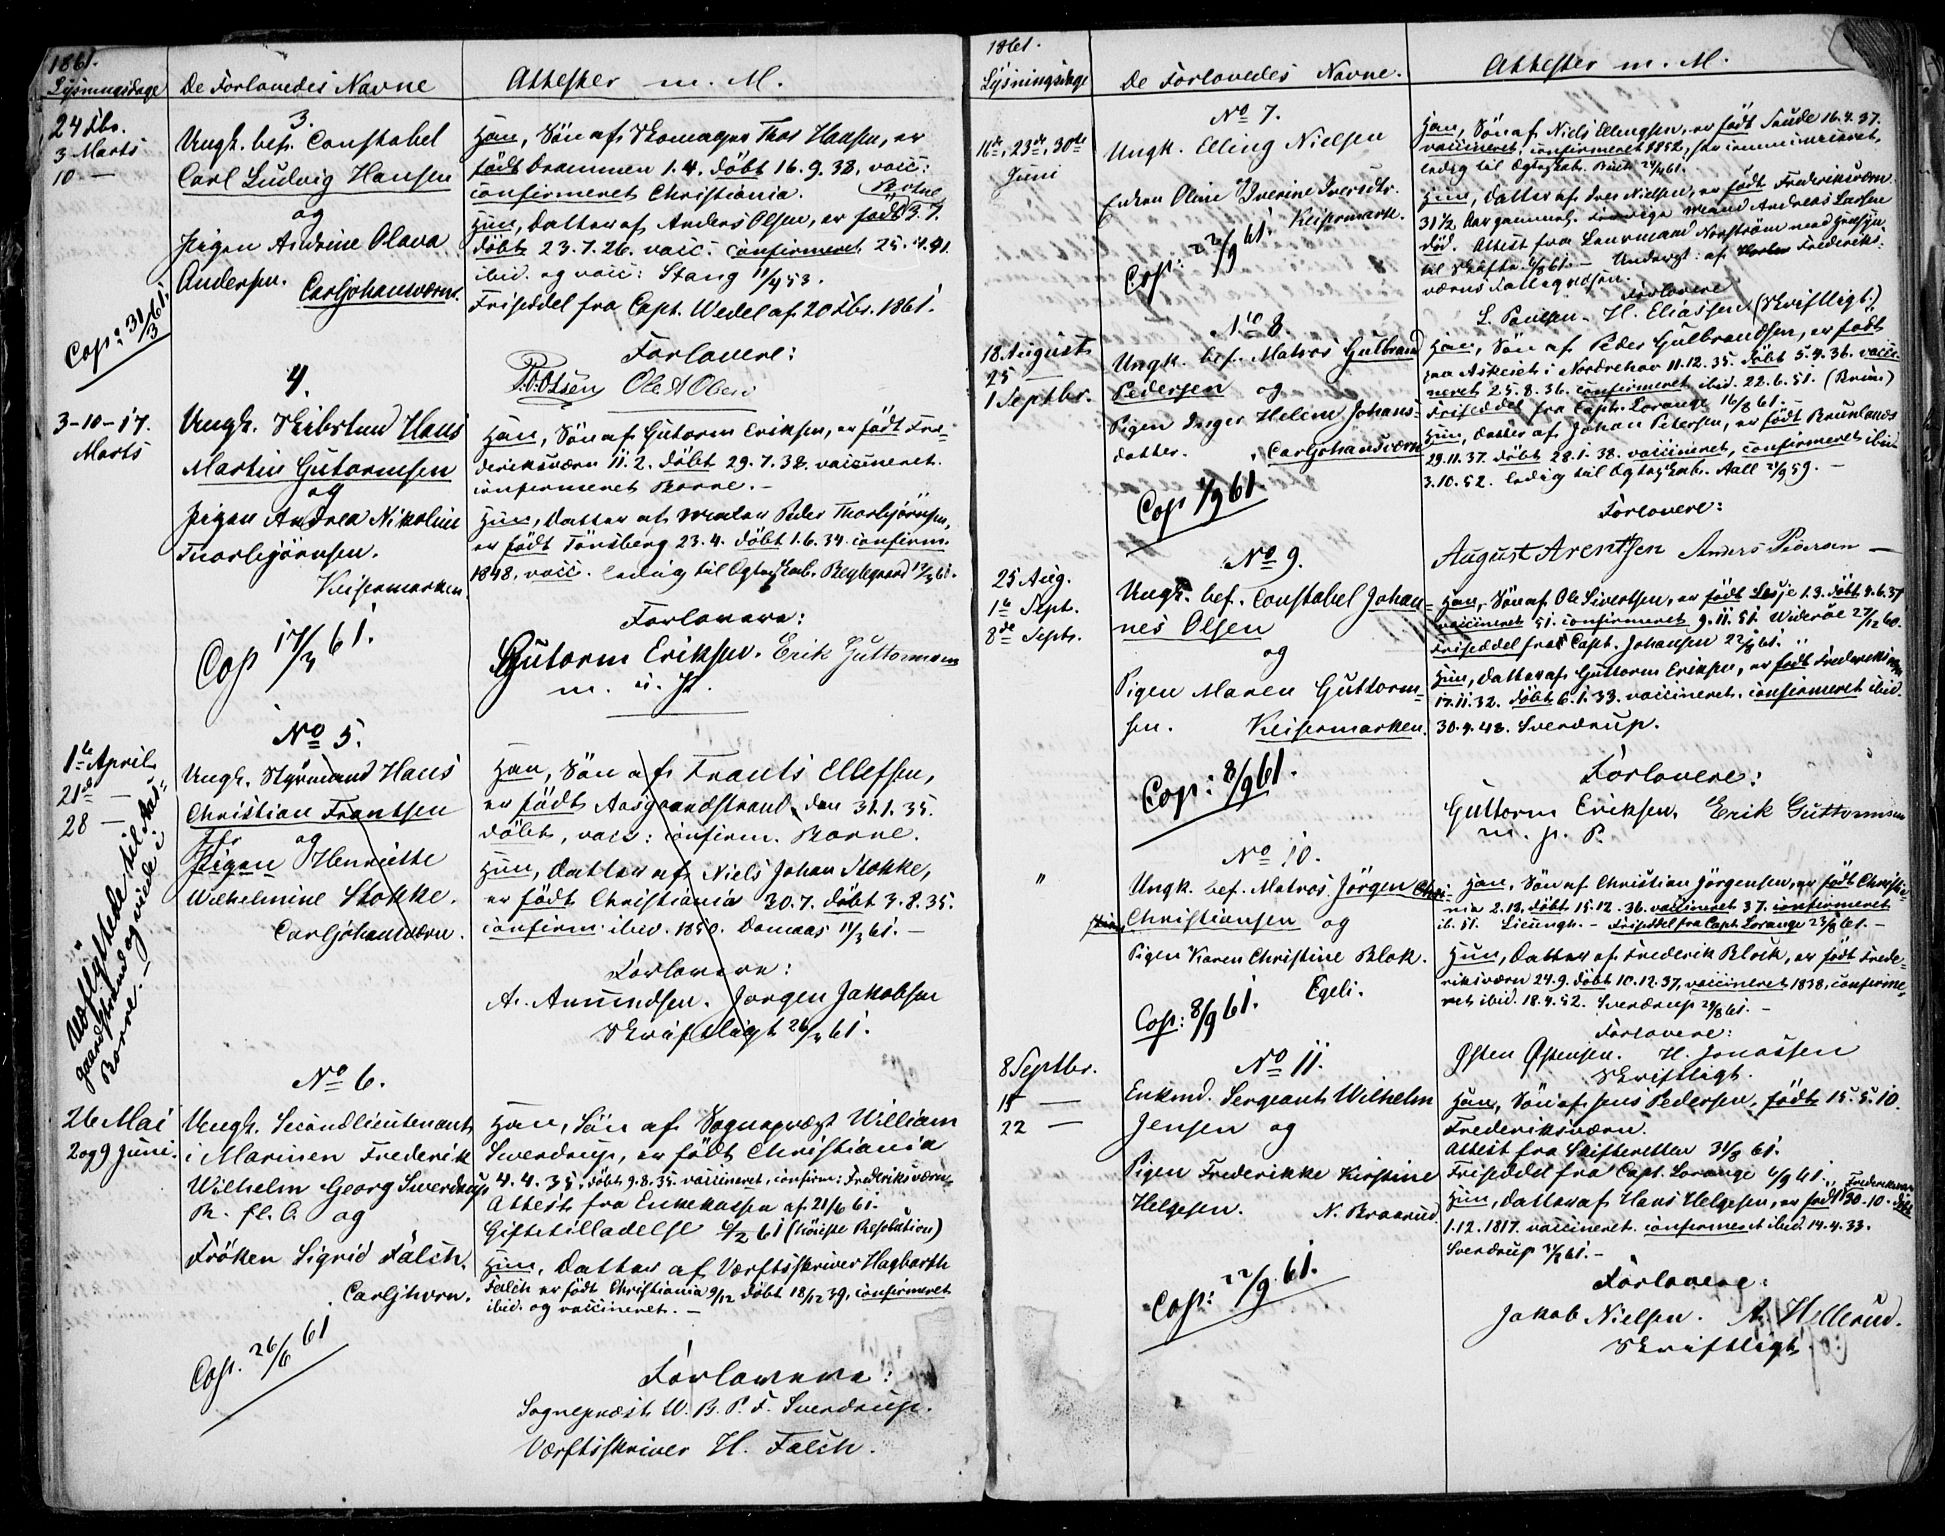 1861.
Lysningsdage
De Forlovedes Navne
Attester m. M.
24 Fbr.
3 Marts
10 —
3.
Ungk. bef. Constabel
Carl Ludvig Hansen
og
Pigen Andrine Olava
Andersen.
Carljohansværn.
Cop: 31/3 61.
Han, Søn af Skomager Thor Hansen, er
født Drammen 1.4. døbt 16.9.38, vacc:
confirmeret Christiania.
Hun, Datter af Anders Olsen, er født 3.7.
døbt 23.7.26. vacc: confirmeret
ibid. og vacc: Stang 11/4 53.
Friseddel fra Capt. Wedel af 20 Fbr. 1861.
Forlovere:
P. Olsen Ole A Olsen
4.
3-10-17.
Marts
Ungk. Skibstmd Hans
Martin Gutormsen
og
Pigen Andrea Nikoline
Thorbjørnsen.
Keisermarken
Cop 17/3 61.
Han, Søn af Gutorm Eriksen, er født Fre-
deriksværn 11.2. døbt 29.7.32. vaccineret.
confirmeret Borre. —
Hun, Datter af Peder Thorbjørnsen,
er født Tønsberg 23.4. døbt 1.6.34. confirm.
1848. vacc. ledig til Ogteskab.
Forlovere:
Gutorm Eriksen. Erik Guttormsen
m. i. P.
No 5.
1te April
21de —
28 —
Ungk. Styrmand Hans
Christian Frantsen
og
Pigen Henriette
Wilhelmine Stokke.
Carljohansværn.
Udflyttede til Aas-
gaardstrand og viede i
Borre. —
Han, Søn af Frants Ellefsen,
er født Aasgaardstrand den 31.1.35.
døbt, vacc: confirm. Borre.
Hun, Datter af Niels Johan Stokke,
er født Christiania 30.7. døbt 3.8.35.
confirm: ibid. 1850. Domaas 11/3 61. —
Forlovere:
A. Amundsen. Jørgen Jakobsen
Skriftligt 26/3 61.
No 6.
26 Mai
2 og 9 Juni.
Ungk. Secondlieutenant
i Marinen Frederik
Wilhelm Georg Sverdrup
og
Frøken Sigrid Falch.
Carljhvrn.
Cop. 26/6 61
Han, Søn af Sogneprest William
Sverdrup, er født Christiania
4.4.35, døbt 9.8.35. vaccineret, confirm: Frederiksværn
Attest fra Enkekassen af 21/6 61.
Giftetilladelse 6/2 61 (Kongl. Resolution)
Hun, Datter af Værftsskriver Hagbarth
Falch er født Christiania 9/12 døbt 18/12 39, confirmeret
ibid. og vaccineret. —
Forlovere:
Sogneprest W. B. P. F. Sverdrup.
Værftsskriver H. Falch.
1861.
Lysningsdage
De Forlovedes Navne.
Attester m. M.
No 7.
16de, 23de, 30de
Juni
Ungk. Elling Nielsen
Enken Oline Iverine Iversdtr.
Keisermark.
Cop: 22/9 61.
Han, Søn af Niels Ellingsen, er født Saude 16.4.37.
vaccineret, confirmeret 1852,
ledig til Ogteskab.
Hun, Datter af Iver Nielsen, er født Frederiksværn
31 1/2 Aar gammel. Forrige Mand Andreas Larsen
død. Attest fra Lensmand Norstrøm med Hensyn
til Skifte. 61. — Underst: af Frederiks-
værns Fattigvæsen.
Forlovere
L. Poulsen. H. Eliassen (Skriftligt.)
No 8.
18 August
25 —
1 Septbr.
Ungk. bef. Matros Gulbrand
Pedersen og
Pigen Inger Heline Johans-
datter.
Carljohansværn
Cop 1/9 61.
Han, Søn af Peder Gulbrandsen, er født
paa Askeset i Norderhov 11.12.35. døbt 5.4.36. vacci-
neret 25.8.36. confirmeret ibid. 22.6.51. (Bruun)
Friseddel fra Capt. Lorange 16/8 61. —
Hun, Datter af Johan Petersen, er født Brunlands
29.11.37. døbt 28.1.38. vaccineret, confirmeret ibid
3.10.52. ledig til Ogteskab. Aall 59. —
Forlovere:
August Arentsen Anders Pedersen —
No 9.
25 Aug.
1te Sept.
8de Septr.
Ungk. bef. Constabel Johan-
nes Olsen
og
Pigen Maren Guttorm-
sen. Keisermarken.
Cop: 8/9 61.
Han, Søn af Ole Sivertsen, er født Lesje 1.3. døbt 9.6.37
vaccineret 51. confirmeret 9.11.51. Widerøe 27/12 60.
Friseddel fra Capt. Johansen 22/8 61.
Hun, Datter af Guttorm Eriksen, er født Frederiksværn
17.11.32. døbt 6.1.33. vaccineret, confirmeret ibid.
30.4.48. Sverdrup.
Forlovere:
Guttorm Eriksen. Erik Guttormsen
m. p. P.
No 10.
"
Ungk. bef. Matros Jørgen
Christiansen og
Pigen Karen Christine Blok.
Egeli.
Cop: 8/9 61.
Han, Søn af Christian Jørgensen, er født Christia-
nia 2.12. døbt 15.12.36. vaccineret 37. confirmeret
ib. 51. — Friseddel fra Capt. Lorange 23/8 61. —
Hun, Datter af Frederik Block, er født Frede-
riksværn 24.9. døbt 10.12.37, vaccineret 1838, confirme-
ret ibid. 18.4.52. Sverdrup 29/8 61. —
Forlovere:
Østen Østensen. H. Jonassen
Skriftligt.
No 11.
8 Septbr.
15 —
22 —
Enkmd. Sergeant Wilhelm
Jensen og
Pigen Frederikke Kirstine
Helgesen. N. Braarud
Cop: 22/9 61.
Han, Søn af Jens Pedersen, født 15.5.10.
Frederiksværn.
Attest fra Skifteretten 31/8 61.
Friseddel fra Capt. Lorange 4/9 61.
Hun, Datter af Hans Helgesen, er født Frederiksværn 30.10. døbt
1.12.1817. vaccineret. confirmeret ibid. 14.4.33.
Sverdrup 61. —
Forlovere:
Jakob Nielsen. A. Hellerud.
Skriftligt